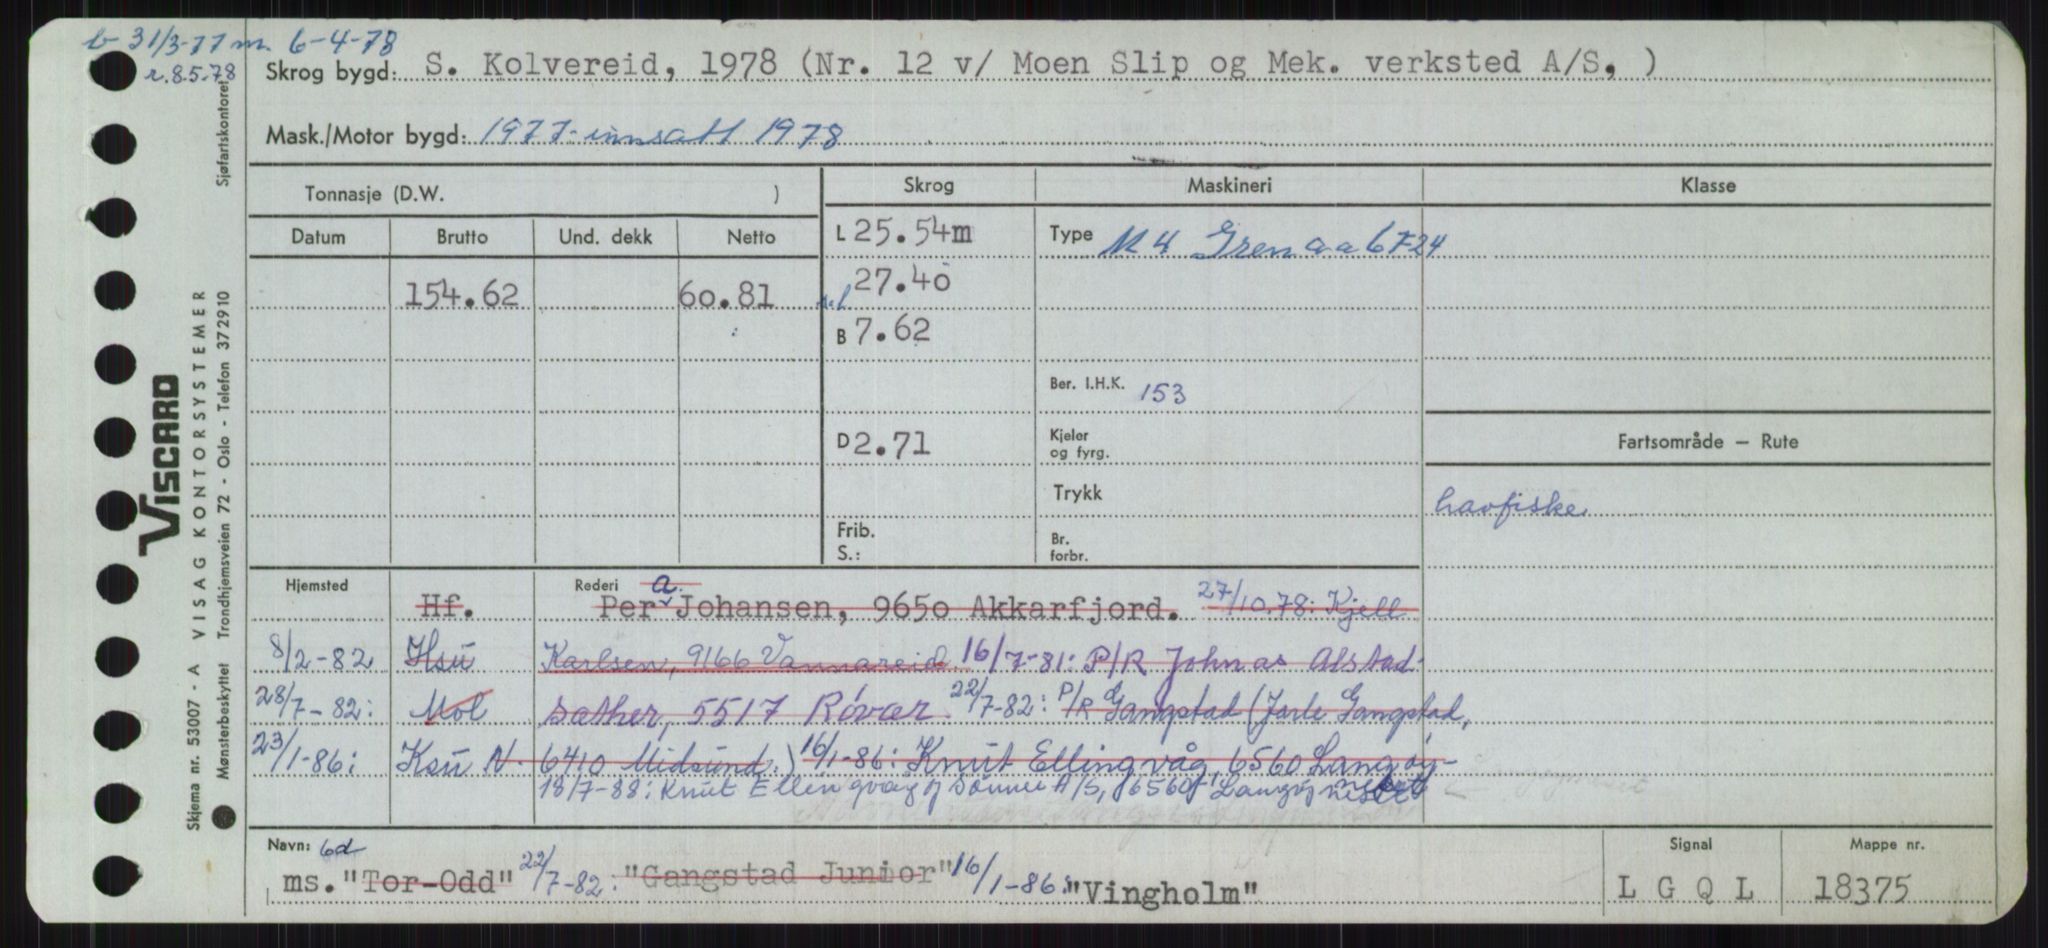 b 31/3-77 m. 6-4-78
r. 8.5.78
Skrog bygd: S. Kolvereid, 1978 (Nr. 12 v/ Moen Slip og Mek. verksted A/S, )
Mask./Motor bygd: 1977-innsatt 1978
Sjøfartskontoret
VISCARD
Skjema nr. 53007 - A VISAG KONTORSYSTEMER
Mønsterbeskyttet Trondhjemsveien 72 - Oslo - Telefon 372910
Tonnasje (D.W. )
Skrog Maskineri Klasse
Datum Brutto Und. dekk Netto
L 25.54m
Type M 4 Grenaa 6F24
154.62 60.81
27.40
B 7.62
Ber. I.H.K. 153
D 2.71
Kjeler og fyrg.
Fartsområde — Rute
Trykk
havfiske
Frib. S.:
Br. forbr.
Hjemsted Rederi
Hf. Per a. Johansen, 9650 Akkarfjord. 27/10.78: Kjell
8/2-82 Hsü Karlsen, 9166 Vannareid 16/7-81: P/R Johnas Alstad-
28/7-82: Mol sæther, 5517 Røvær 22/7-82: P/R Gangstad (Jarle Gangstad,
23/1-86: Ksü N. 6410 Midsund.) 16/1-86: Knut Ellingvåg, 6560 Langøy-
18/7-88: Knut Ellingvåg & Sønner A/S, 6560 Langøyneset
Navn: 6d
ms. "Tor-Odd" 22/7-82: "Gangstad Junior" 16/1-86: "Vingholm"
Signal LGQL
Mappe nr. 18375